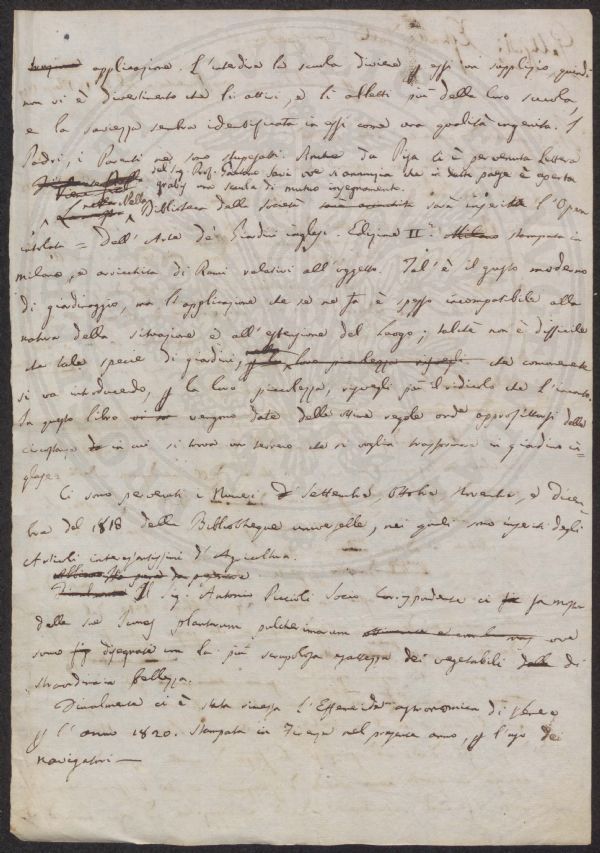 applicazione. L'intedia la scuola diviene p essi un supplizio, quindi
non vi è divertimento che li attivi, e li alletti più della loro scuola,
e la saviezza sembra identificata in essi come una qualità ingenita. I
Padri, i Parenti ne sono stupefatti. Anche da Pisa ci è pervenuta Lettera
del Sig. Prof. Gaetano Savi ove si annunzia che in detta parte è aperta
gratis una scuola di mutuo insegnamento.
Nella Biblioteca della società sarà inserita l'Opera
intitolata = Dell'Arte de' Giardini inglesi. Edizione II.a Milano stampata in
milano, e arricchita di Rami relativi all'oggetto. Tal'è il gusto moderno
di giardinaggio, ma l'applicazione che se ne fa è spesso incompatibile alla
natura della situazione e all'estensione del luogo; talchè non è difficile
che tale specie di giardini, che comunemente
si va introducendo, p la loro piccolezza, risvegli più il ridicolo che l'incanto.
In questo libro vengono date delle ottime regole onde approfittarsi della
circostanza in cui si trova un terreno che si voglia trasformare in giardino in=
glese.
Ci sono pervenuti i Numeri di Settembre, Ottobre Novembre, e Dicem
bre del 1818 della Bibliotheque universelle, nei quali sono inseriti degli
Articoli interessantissimi d'Agricoltura.
Il Sig. Antonio Piccioli Socio Corrispondente ci fa mostra
delle sue Imag. plantarum pulcherimarum ove
sono disegnate con la più scrupolosa esattezza dei vegetabili di
straordinaria bellezza.
Finalmente ci è stata rimessa l'Effemeride astronomica di
p l'anno 1820. Stampata in Firenze nel presente anno, p l'uso dei
navigatori —